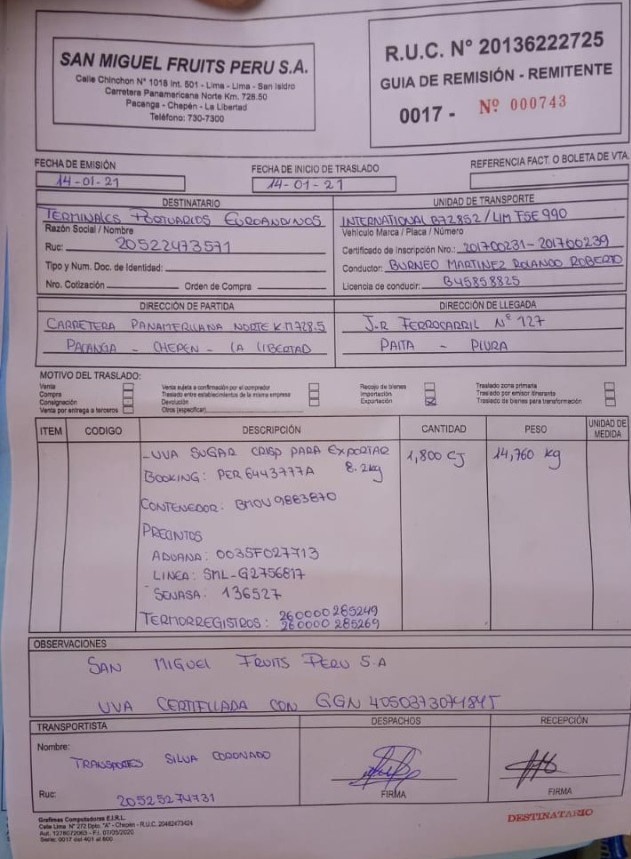 SAN MIGUEL FRUITS PERU S.A.
Calle Chinchon N° 1018 Int. 501 - Lima - Lima - San Isidro
Carretera Panamericana Norte Km. 728.50
Pacanga - Chepén - La Libertad
Teléfono: 730-7300
R.U.C. N° 20136222725
GUIA DE REMISIÓN - REMITENTE
0017 - Nº 000743
FECHA DE EMISIÓN
14-01-21
FECHA DE INICIO DE TRASLADO
14-01-21
REFERENCIA FACT. O BOLETA DE VTA.
DESTINATARIO
TERMINALES PORTUARIOS EUROANDINOS
Razón Social / Nombre
Ruc: 20522473571
Tipo y Num. Doc. de Identidad:
Nro. Cotización Orden de Compra
UNIDAD DE TRANSPORTE
INTERNATIONAL B7Z852 / LIM FSE 990
Vehículo Marca / Placa / Número
Certificado de Inscripción Nro.: 201700231-201700239
Conductor: BURNEO MARTINEZ ROLANDO ROBERTO
Licencia de conducir: B45858825
DIRECCIÓN DE PARTIDA
CARRETERA PANAMERICANA NORTE KM728.5
PACANGA - CHEPEN - LA LIBERTAD
DIRECCIÓN DE LLEGADA
J-R FERROCARRIL N° 127
PAITA - PIURA
MOTIVO DEL TRASLADO:
Venta
Compra
Consignación
Venta por entrega a terceros
Venta sujeta a confirmación por el comprador
Traslado entre establecimientos de la misma empresa
Devolución
Otros (especificar)
Recojo de bienes
Importación
Exportación
Traslado zona primaria
Traslado por emisor itinerante
Traslado de bienes para transformación
ITEM CODIGO DESCRIPCIÓN CANTIDAD PESO UNIDAD DE MEDIDA
- UVA SUGAR CRISP PARA EXPORTAR 1,800 CJ 14,760 kg
BOOKING: PER 6443777A 8.2kg
CONTENEDOR: BMOU 9883870
PRECINTOS
ADUANA: 0035F027713
LINEA: SML-G2756817
SENASA: 136527
TERMORREGISTROS: 260000285249
260000285269
OBSERVACIONES
SAN MIGUEL FRUITS PERU S.A
UVA CERTIFICADA CON GGN 4050373074845
TRANSPORTISTA
Nombre: TRANSPORTES SILVA CORONADO
Ruc: 20525274731
DESPACHOS
FIRMA
RECEPCIÓN
FIRMA
Grafimax Computadores E.I.R.L.
Calle Lima N° 272 Dpto. "A" - Chepén - R.U.C. 20482473424
Aut. 1378072063 - F.I. 01/05/2020
Serie: 0017 del 401 al 800
DESTINATARIO